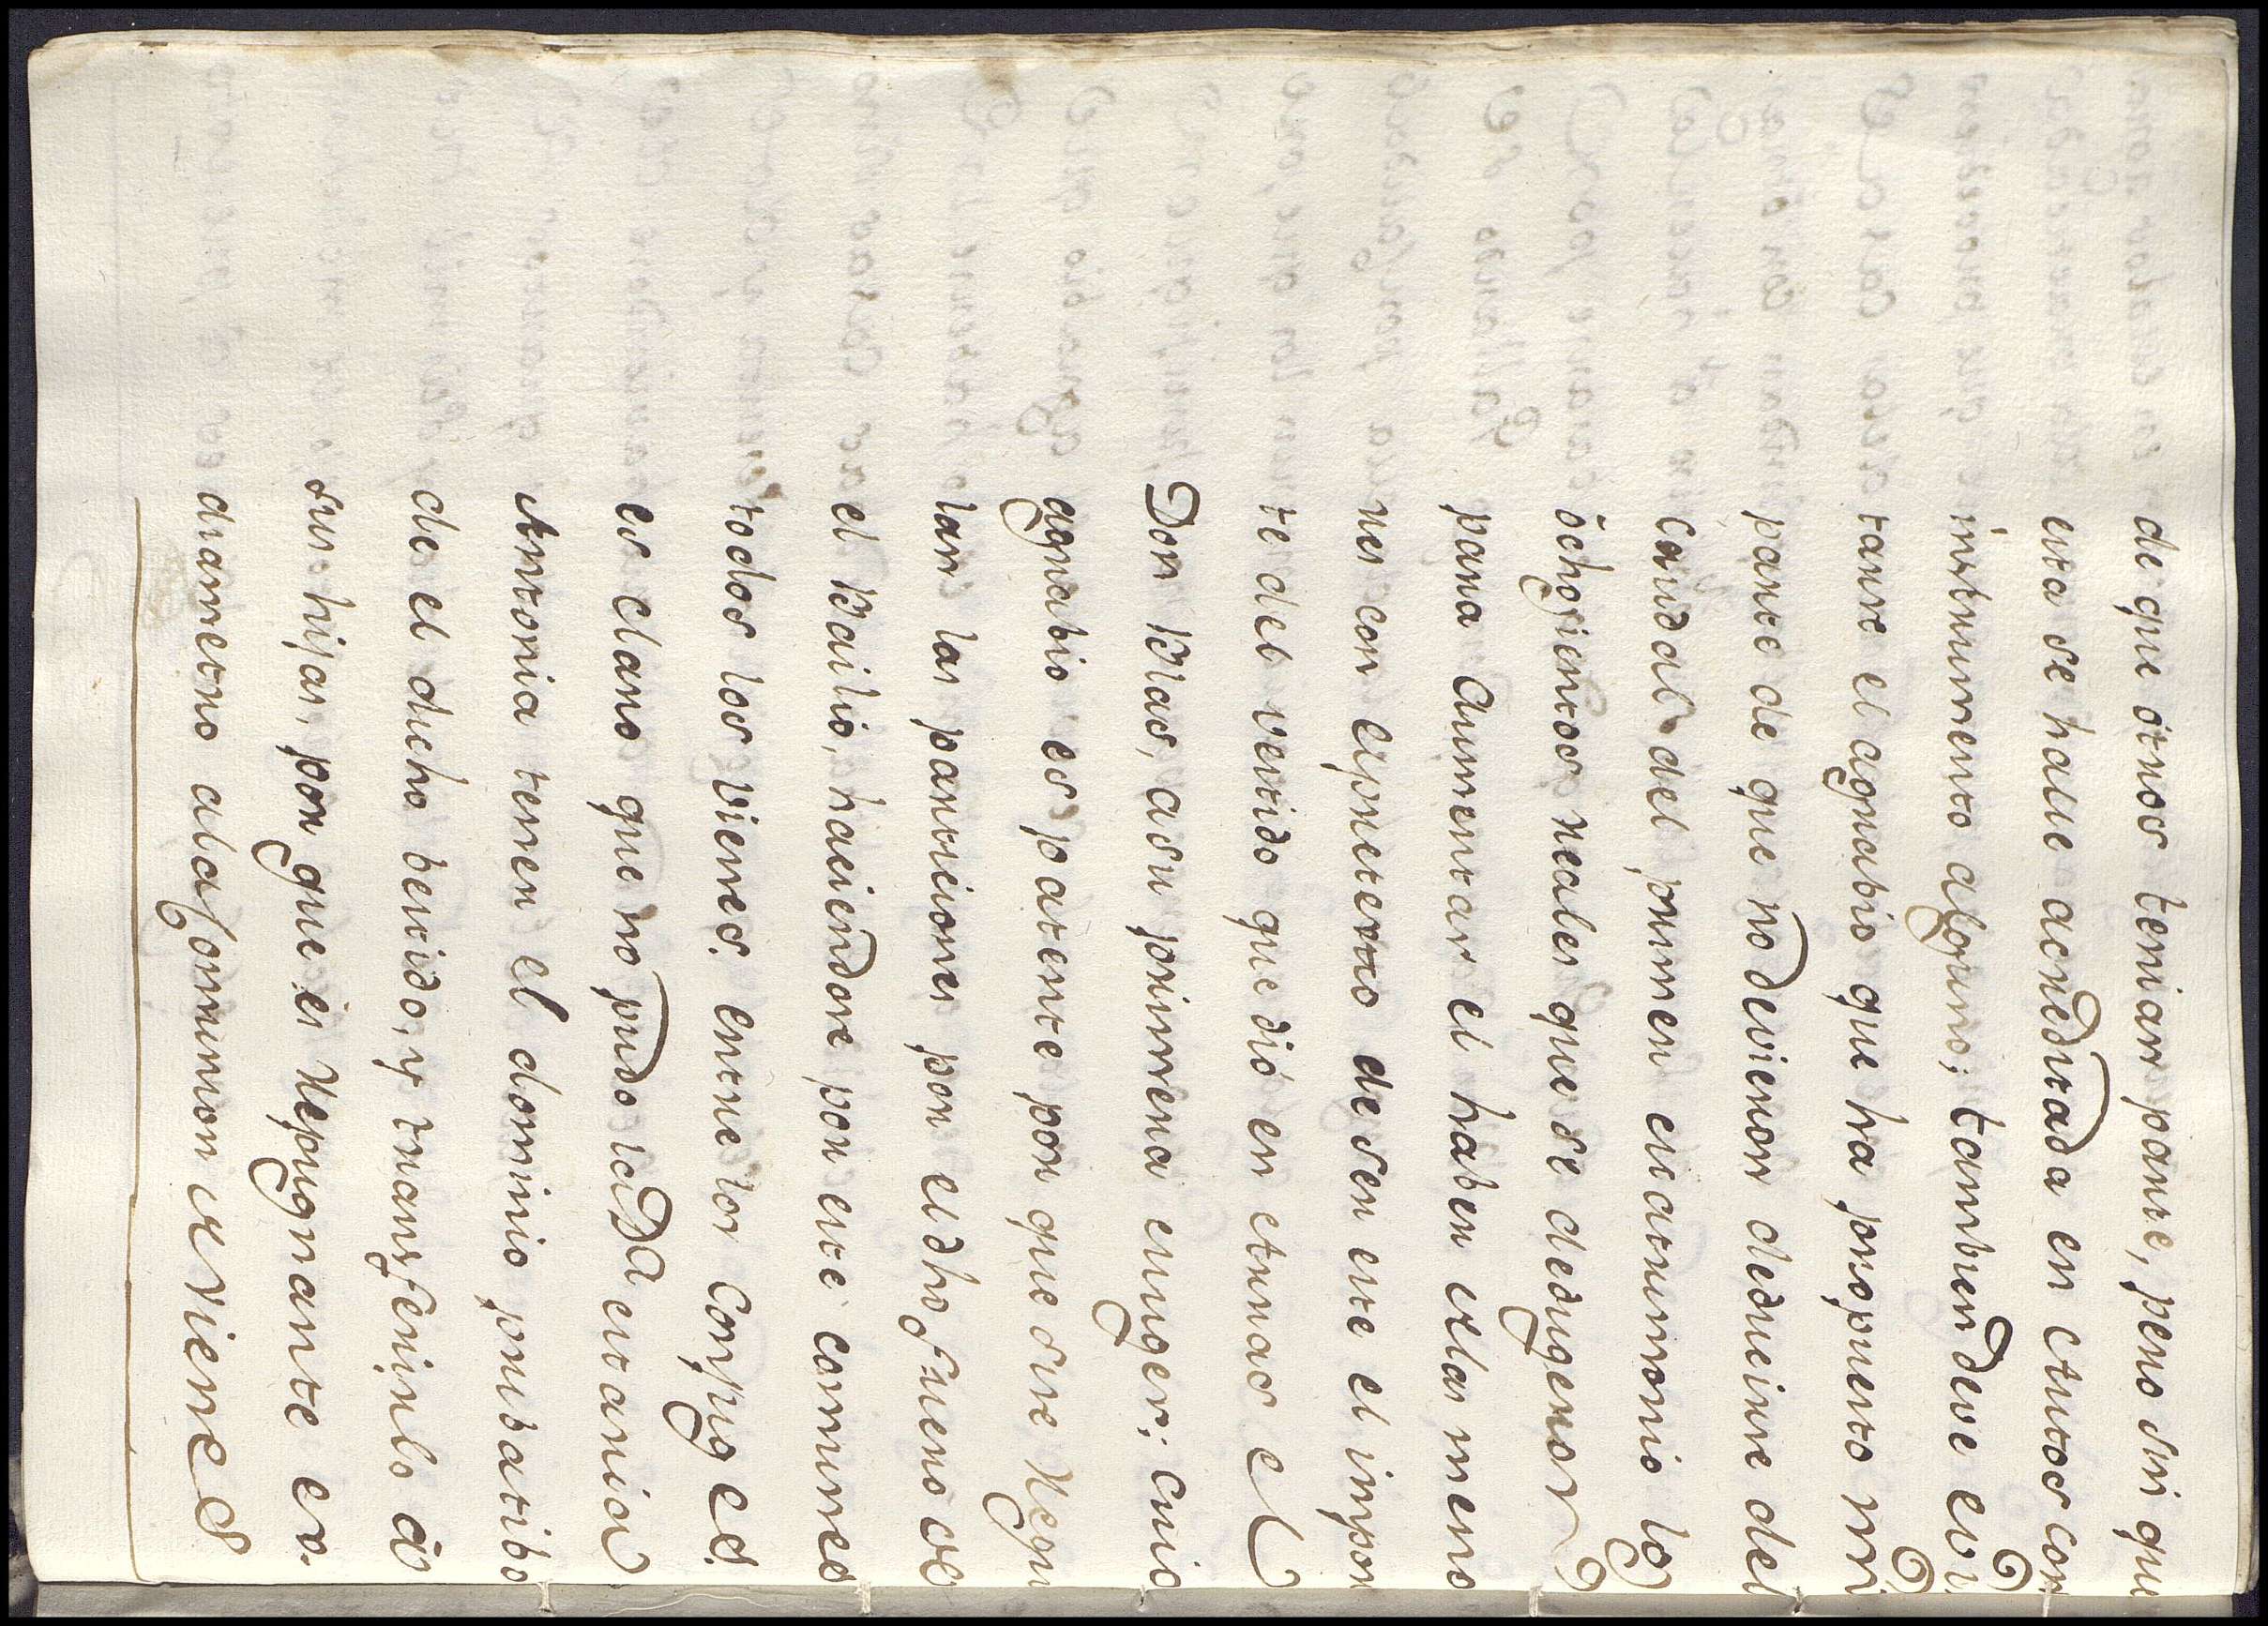 de que òtros tenian parte, pero sin que
esta se halle acreditada en Autos con
instrumento alguno; tambien deve evi
tarse el agrabio que ha propuesto mi
parte de que no devieron deducirse del
Caudal del primer matrimonio los
òchozientos reales que se dedugeron
para Aumentar el haber de las meno
res con el pretexto de ser este el impor
te del vestido que dió en Arras el
Don Blas, asu primera muger: cuio
agrabio es patente por que si se Regu
lan las particiones por el dho fuero de
el Bailio, haciendose por este comunes
todos los vienes. entre los Conjuges.
es claro que no pudo la Da Antonia
Antonia tener el dominio pribatibo
de el dicho bestido, y transferirlo à
sus hijas, por que es Repugnante ex-
diametro ala Comunion de vienes